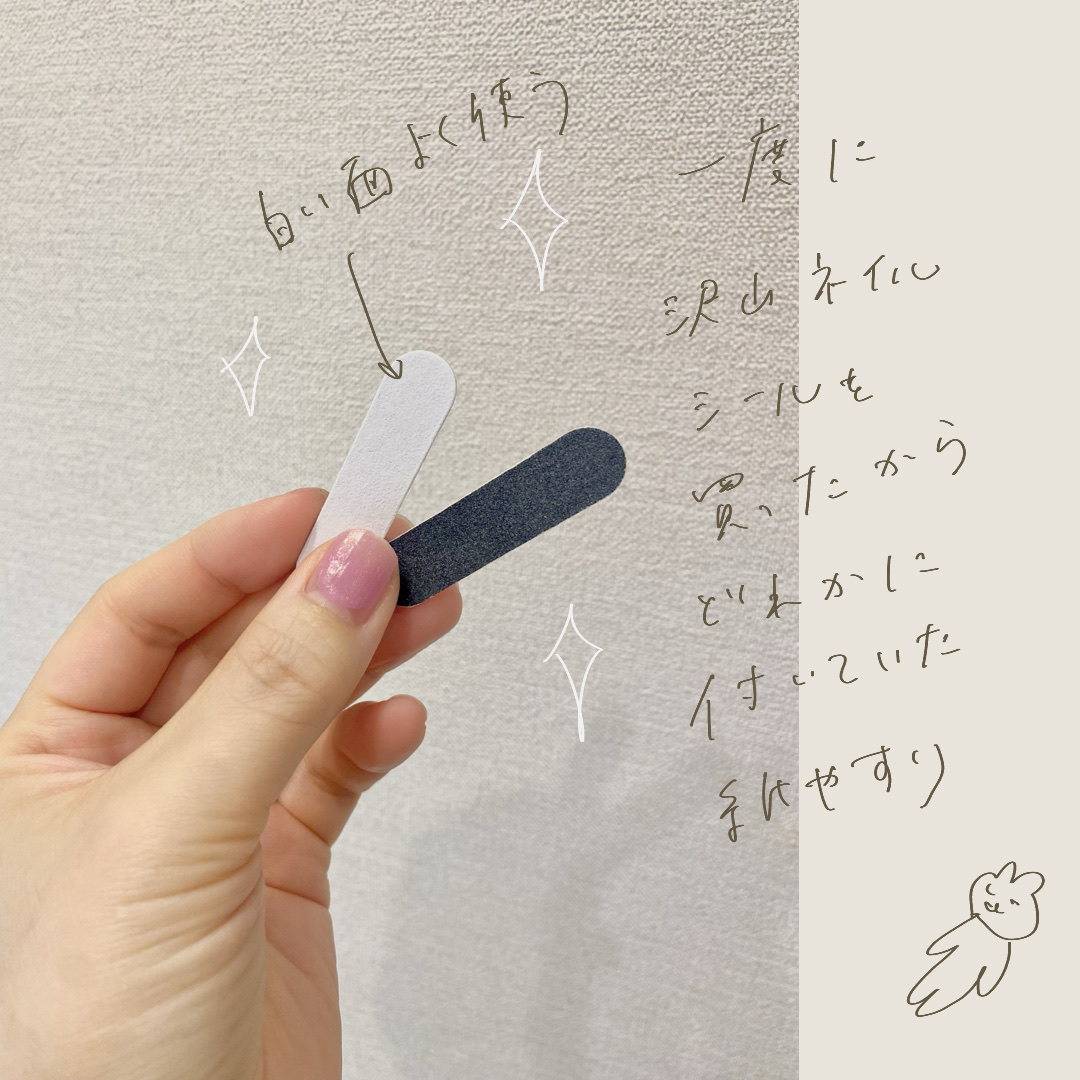 白い面よく使う
一度に
沢山ネイル
シールを
買ったから
どれかに
付いていた
紙やすり